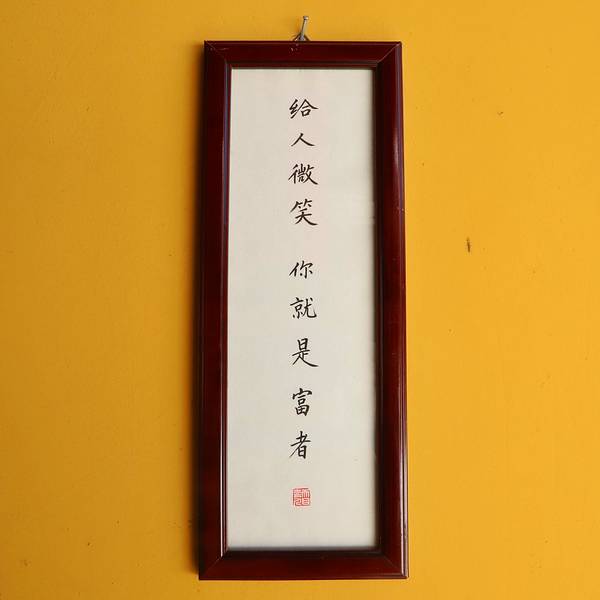 给人微笑 你就是富者